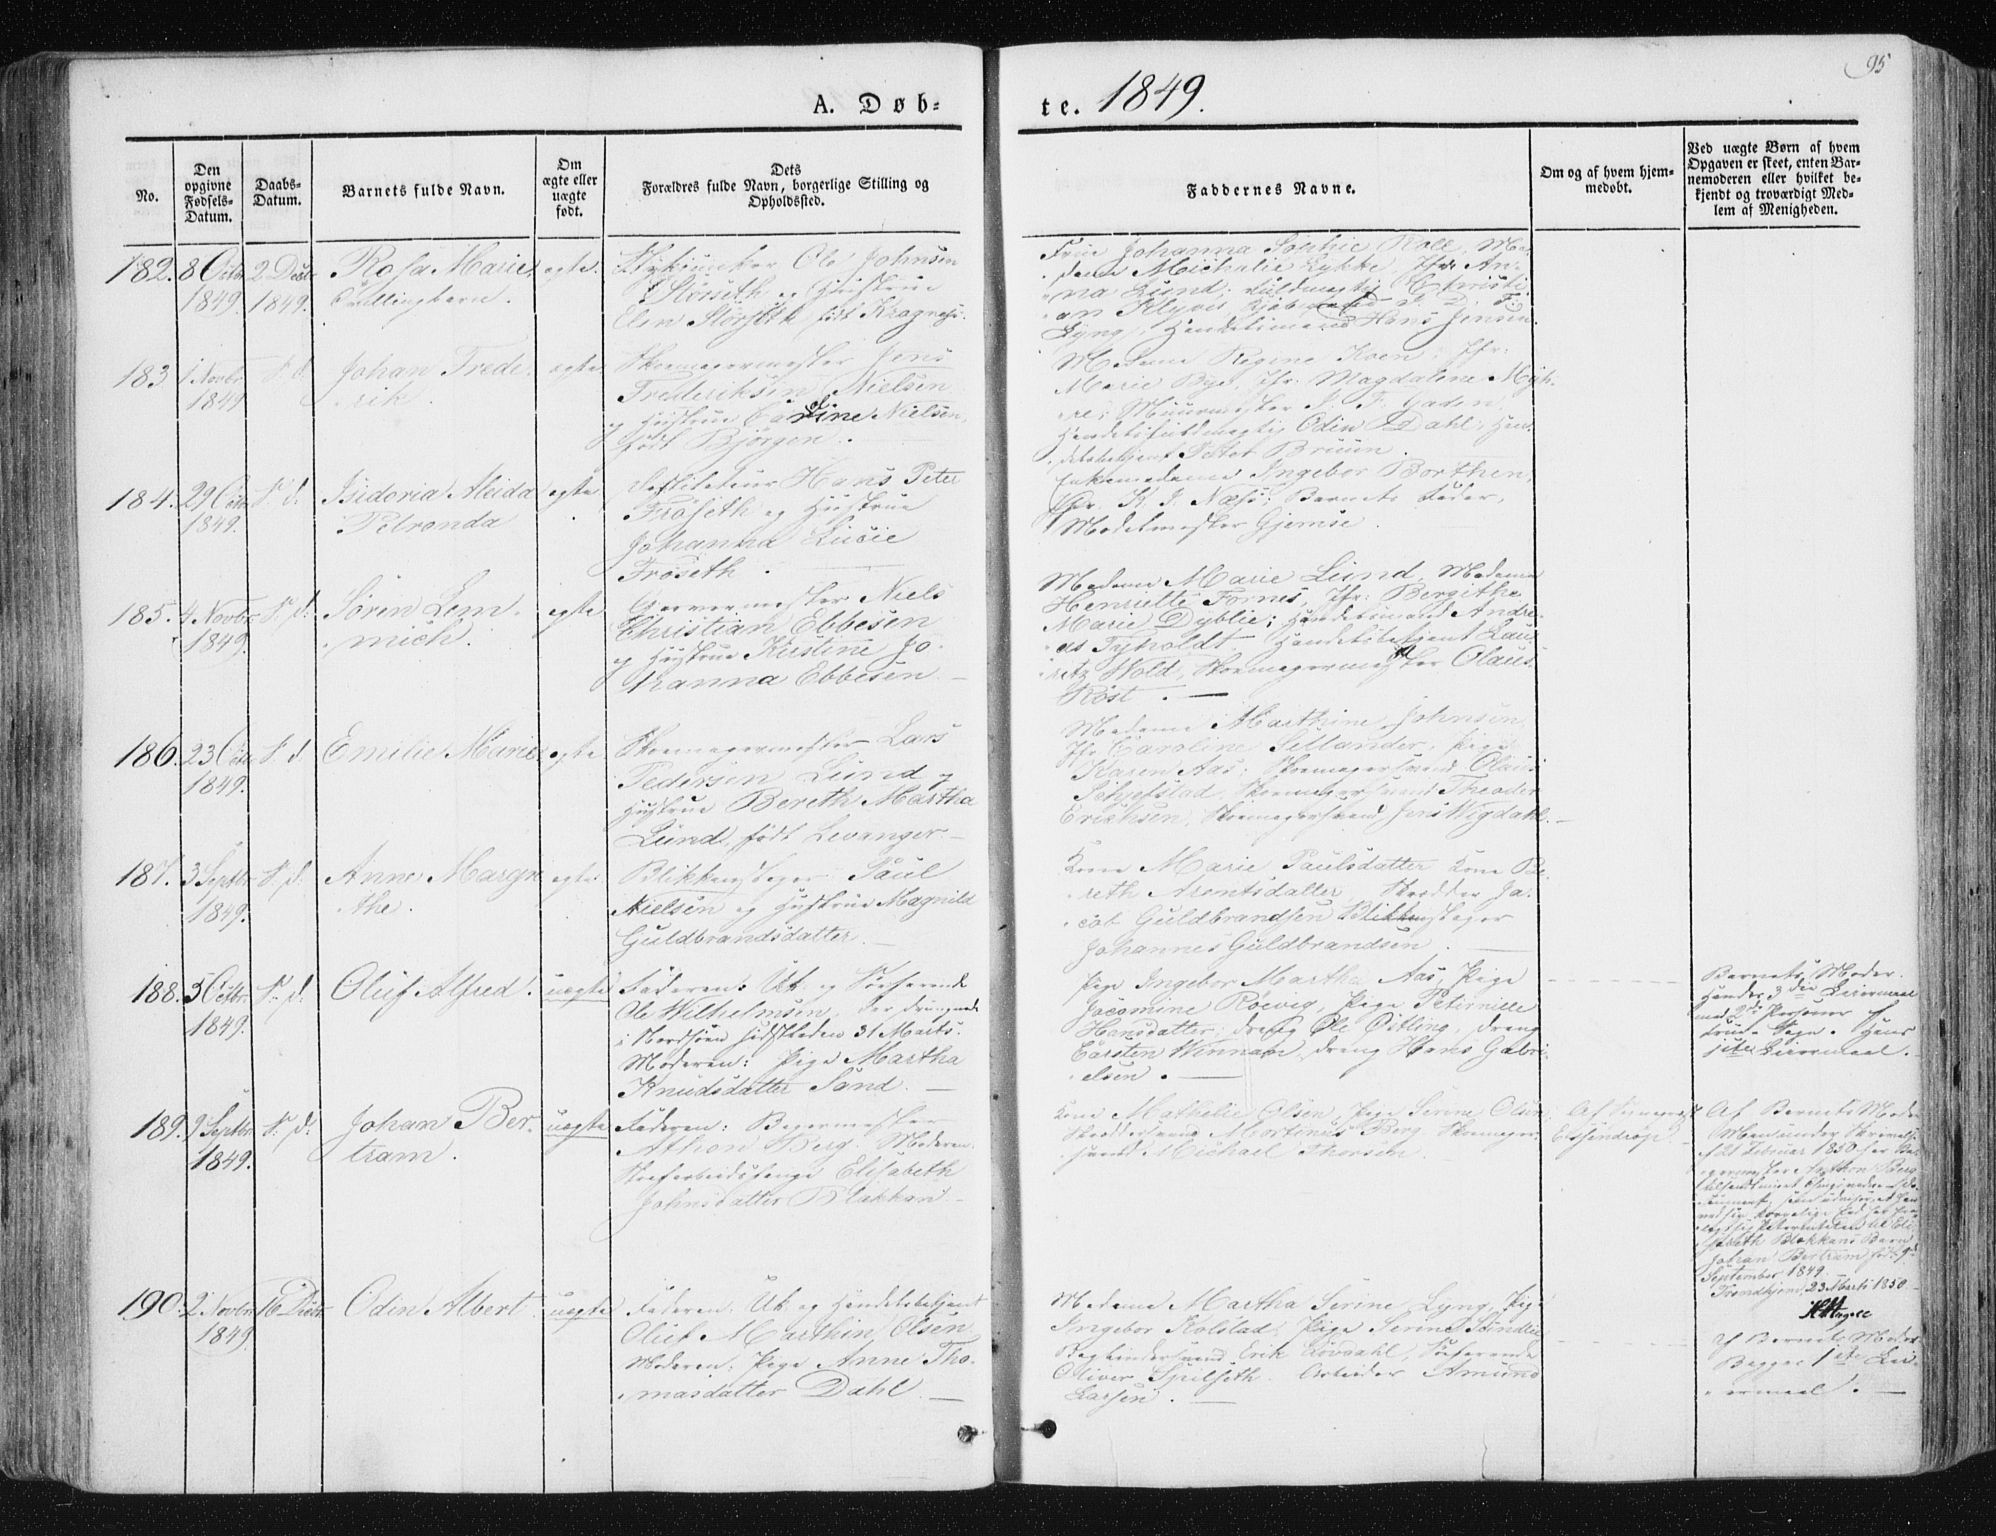 95
A. Døb-
te. 1849.
No.
Den
opgivne
Fødsels-
Datum.
Daabs-
Datum.
Barnets fulde Navn.
Om
ægte eller
uægte
født.
Dets
Forældres fulde Navn, borgerlige Stilling og
Opholdssted.
Faddernes Navne.
Om og af hvem hjem-
medøbt.
Ved uægte Børn af hvem
Opgaven er skeet, enten Bar-
nemoderen eller hvilket be-
kjendt og troværdigt Med-
lem af Menigheden.
182.
8 Octbr
1849.
2 Decbr
1849.
Rosa Marie
Tvillingbarn.
egte.
Stykjunker Ole Johnsen
Störseth og Hustrue
Elen Störseth, født Kragnæs.
Frue Johanna Sophie Roll, Ma-
dame Michalie Lykke, Jfr: An-
na Lund; Fuldmægtig Christi
an Klyve,
Lyng, Handelsmand Hans Jensen
183
1 Novbr
1849
S. d.
Johan Frede-
rik.
egte
Skomagermester Jens
Frederiksen Nielsen
og Hustrue Nielsen,
født Björgen.
Madame Regine Koen; Jfr:
Marie Bye, Jfr: Magdaline Myh-
re; Muurmester J. F. Gaden,
Handelsfuldmægtig Odin Dahl, Han-
delsbetjent Peter Bruun.
184.
29 Octbr
1849.
S. d.
Isidoria Aleida
Petronda
egte
Hans Peter
Fröseth og Hustrue
Johanna Lucie
Fröseth.
Enkemadame Ingebor Borthen,
Gr. K. J. Næss; Barnets Fader,
Modelmester Gjemse.
185.
4 Novbr
1849.
S. d.
Sören Lem-
mich.
egte
Garvermester Niels
Christian Ebbesen
og Hustrue Kirstine Jo-
hanna Ebbesen.
Madame Marie Lund, Madame
Henriette Fornes, Jfr: Bergithe
Marie Dyblie; Handelsmand Andre-
as Tyholdt, Handelsbetjent Lau-
ritz Wold, Skomagermester Olaus
Röst.
186.
23 Octbr
1849.
S. d.
Emilie Marie
egte
Skomagermester Lars
Pedersen Lund og
Hustrue Bereth Martha
Lund, født Levanger.
Madame Marthine Johnsen
Jfr Caroline Sellander, Pige
Karen Aas; Skomagersvend Olaus
Schjefstad, Skomagersvend Theodor
Erichsen, Skomagersvend Jens Wigdahl.
187.
3 Septbr
1849.
S. d.
Anne Margre
the.
egte
Blikkenslager Paul
Nielsen og Hustrue Magnild
Guldbrandsdatter.
Kone Marie Paulsdatter Kone Be-
reth Arentsdatter Skrædder Ja-
cob Guldbrandsen Blikkenslager
Johannes Guldbrandsen.
188.
3 Octbr.
1849.
S. d.
Oluf Alfred.
uægte
Faderen: Uk. og Søefarende
Ole Wilhelmsen, der druknede
i Nordsöen sidstleden 31 Marts.
Moderen: Pige Martha
Knudsdatter Sand.
Pige Ingebor Martha Aas, Pige
Jacomine Roevig, Pige Peternille
Hansdatter, dreng Ole Ostling, dreng
Carsten Winnan, dreng Hans Gabri-
elsen.
Barnets Moder.
Hendes 3die Leiermaal
med 2de Personer af
Hans
1ste Leiermaal.
189.
9 Septbr.
1849.
S. d.
Johan Ber-
tram.
uægte
Faderen: Bagermester
Athon Berg. Moderen.
Elisabeth
Johnsdatter Blakkan
Kone Mathelie Olsen, Pige Serine Olsen
Skræddersvend Mortinus Berg, Skomager
svend Michael Thorsen.
Af
Af Barnets Moder
Men under Skrivelse
af 21 Februar 1850 har Ba-
germester Anthon Berg
Johan Bertram født 9de
September 1849.
Trondhjem, 23 Marts 1850.
190.
2 Novbr
1849.
16 Decbr
Odin Albert.
uægte
Faderen: Uk. og Handelsbetjent
Oluf Marthin Olsen
Moderen: Pige Anne Tho-
masdatter Dahl.
Madame Martha Serine Lyng, Pige
Ingebor Kolstad, Pige Serine
Bogbindersvend Erik Lövdahl, Søefarende
Oliver Spilseth. Arbeider Amund
Larsen.
af Barnets Moder
Begges 1ste Lei-
ermaal.